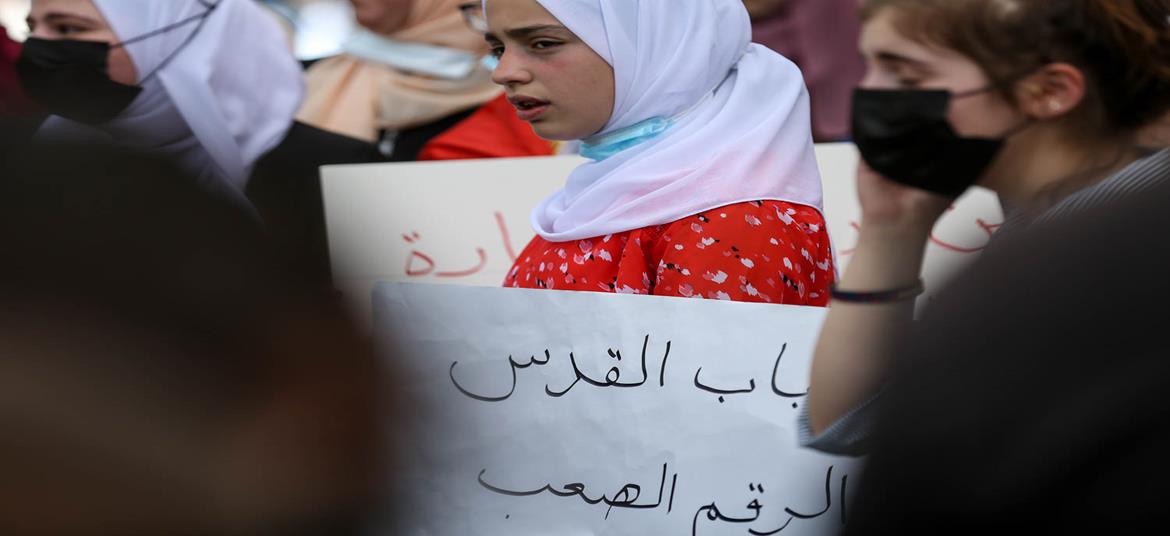 باب القدس
الرقم الصعب